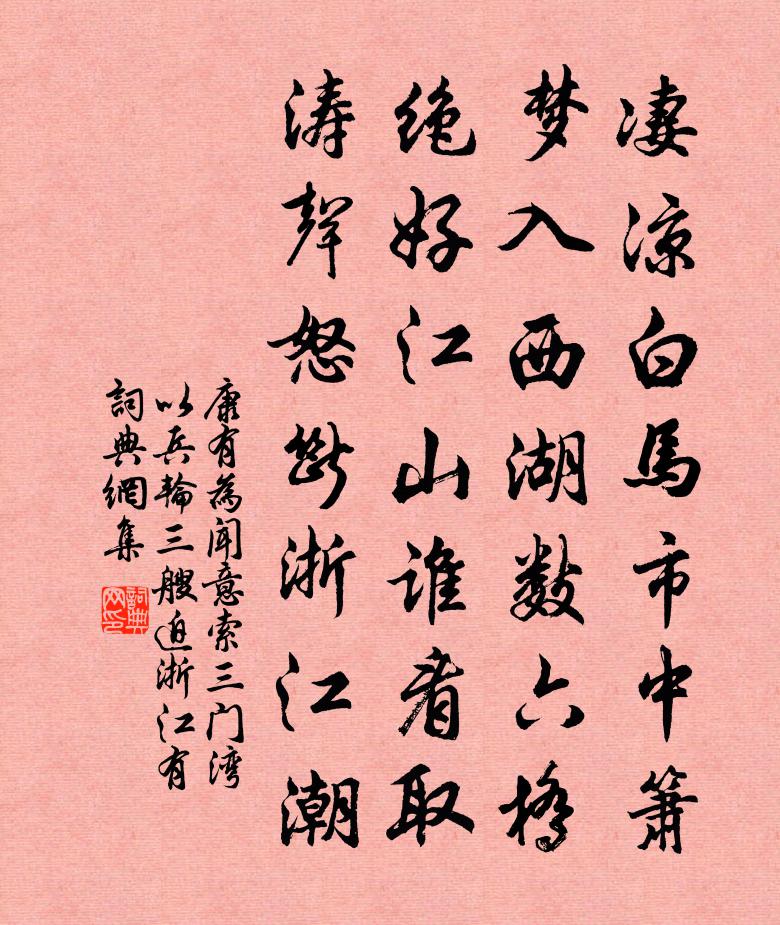 凄凉白馬市中箫
梦入西湖数六橋
绝好江山谁看取
涛聲怒断浙江潮
康有為闻意索三门湾
以兵輪三艘迫浙江有
詞典網集
詞典网印